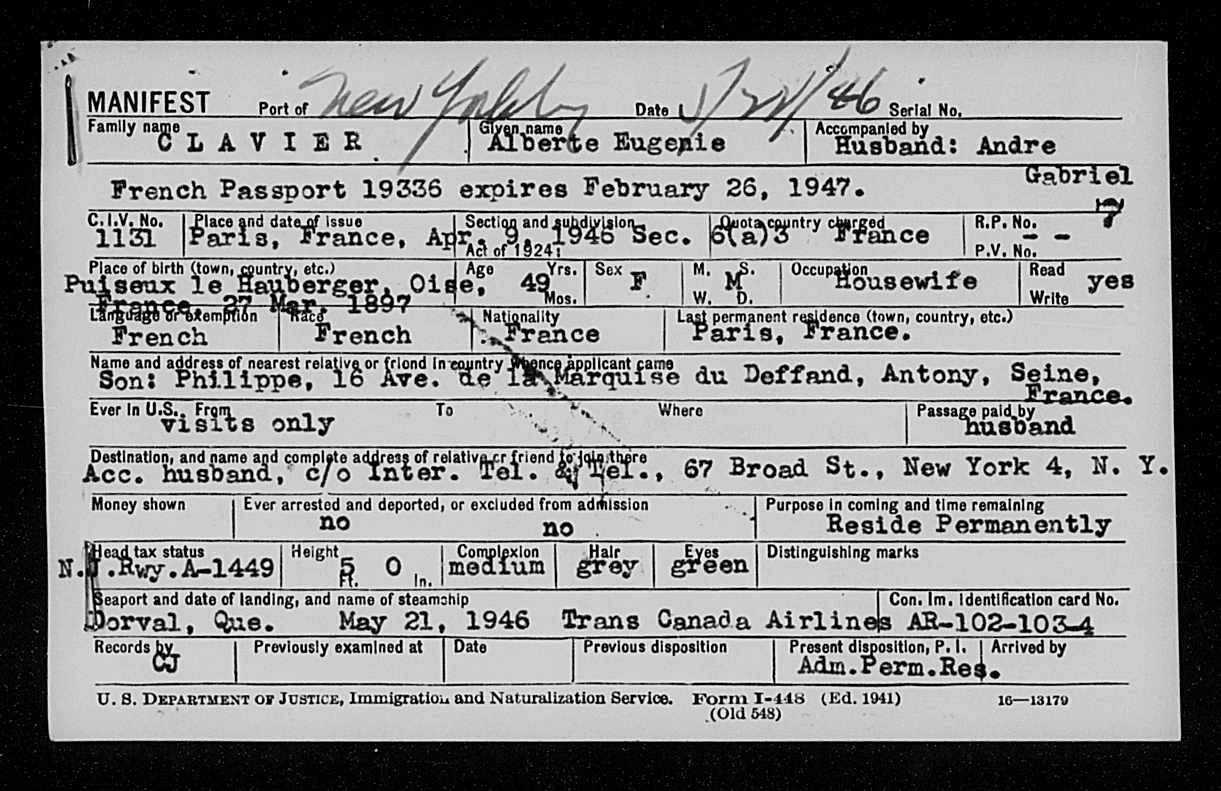 MANIFEST Port of New York by Date 5/22/46 Serial No.
Family name Given name Accompanied by
CLAVIER Alberte Eugenie Husband: Andre
Gabriel
French Passport 19336 expires February 26, 1947.
7
C.I.V. No. Place and date of issue Section and subdivision Quota country charged R.P. No.
1131 Paris, France, Apr. 9, 1946 Sec. 6(a)3 France - -
Act of 1924: P.V. No.
Place of birth (town, country, etc.) Age Yrs. Sex M. S. Occupation Read
Puiseux le Hauberger, Oise, 49 F M Housewife yes
Mos. W. D. Write
France. 27 Mar. 1897
Language or exemption Race Nationality Last permanent residence (town, country, etc.)
French French France Paris, France.
Name and address of nearest relative or friend in country whence applicant came
Son: Philippe, 16 Ave. de la Marquise du Deffand, Antony, Seine,
France.
Ever in U.S. From To Where Passage paid by
visits only husband
Destination, and name and complete address of relative or friend to join there
Acc. husband, c/o Inter. Tel. & Tel., 67 Broad St., New York 4, N. Y.
Money shown Ever arrested and deported, or excluded from admission Purpose in coming and time remaining
no no Reside Permanently
Head tax status Height Complexion Hair Eyes Distinguishing marks
N.J.Rwy.A-1449 5 0 medium grey green
Ft. In.
Seaport and date of landing, and name of steamship Con. Im. Identification card No.
Dorval, Que. May 21, 1946 Trans Canada Airlines AR-102-103-4
Records by Previously examined at Date Previous disposition Present disposition, P. I. Arrived by
CJ Adm.Perm.Res.
U. S. DEPARTMENT OF JUSTICE, Immigration and Naturalization Service. Form I-448 (Ed. 1941) 16—13179
(Old 548)